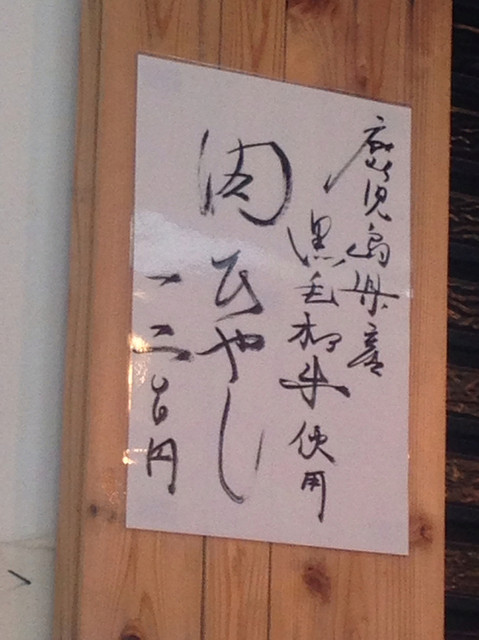 鹿児島県産
黒毛和牛使用
肉ひやし
一二百円